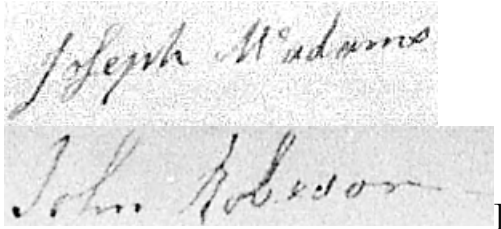 Joseph Mcadams
John Robeson